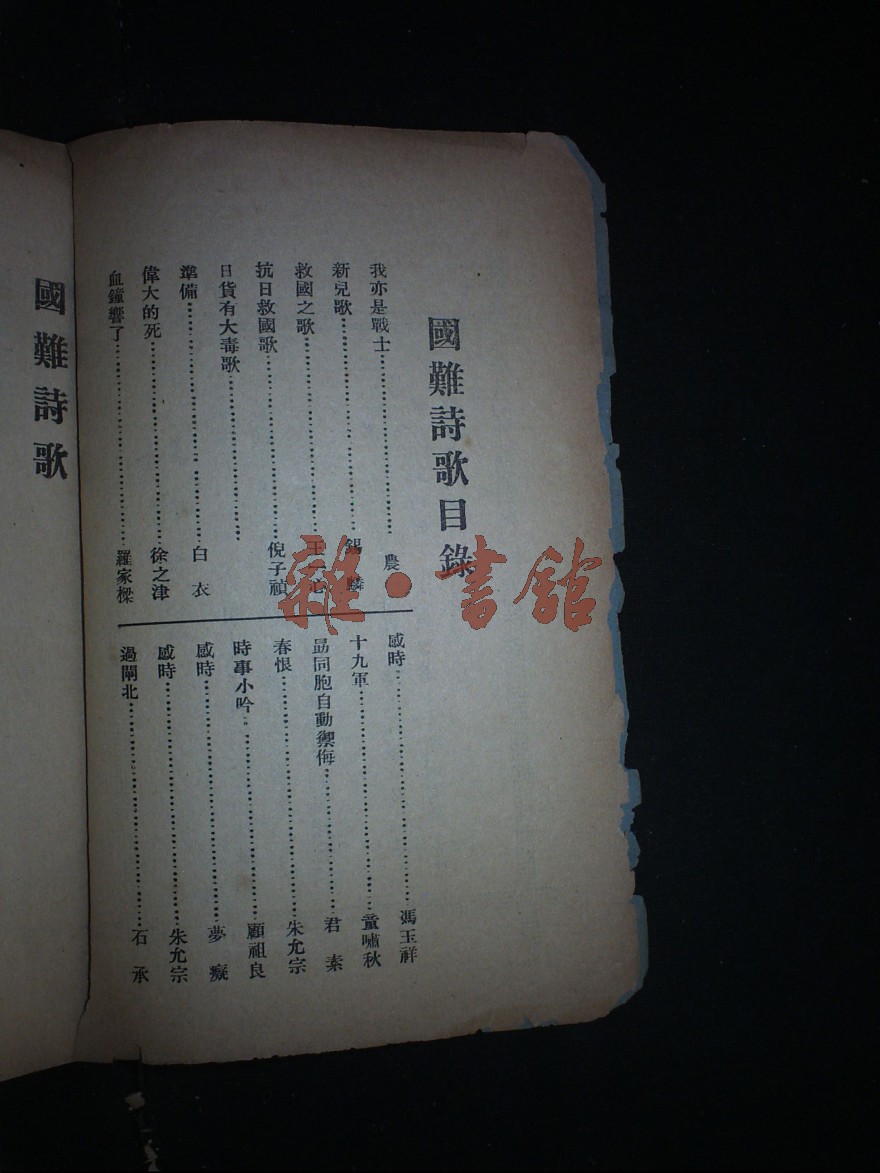 國難詩歌目錄
我亦是戰士 農
新兒歌 錫麟
救國之歌 王一心
抗日救國歌 倪子禎
日貨有大毒歌
準備 白衣
偉大的死 徐之津
血鐘響了 羅家樑
感時 馮玉祥
十九軍 童嘯秋
勗同胞自動禦侮 君素
春恨 朱允宗
時事小吟 顧祖良
感時 夢癡
感時 朱允宗
過閘北 石承
國難詩歌
雜·書館